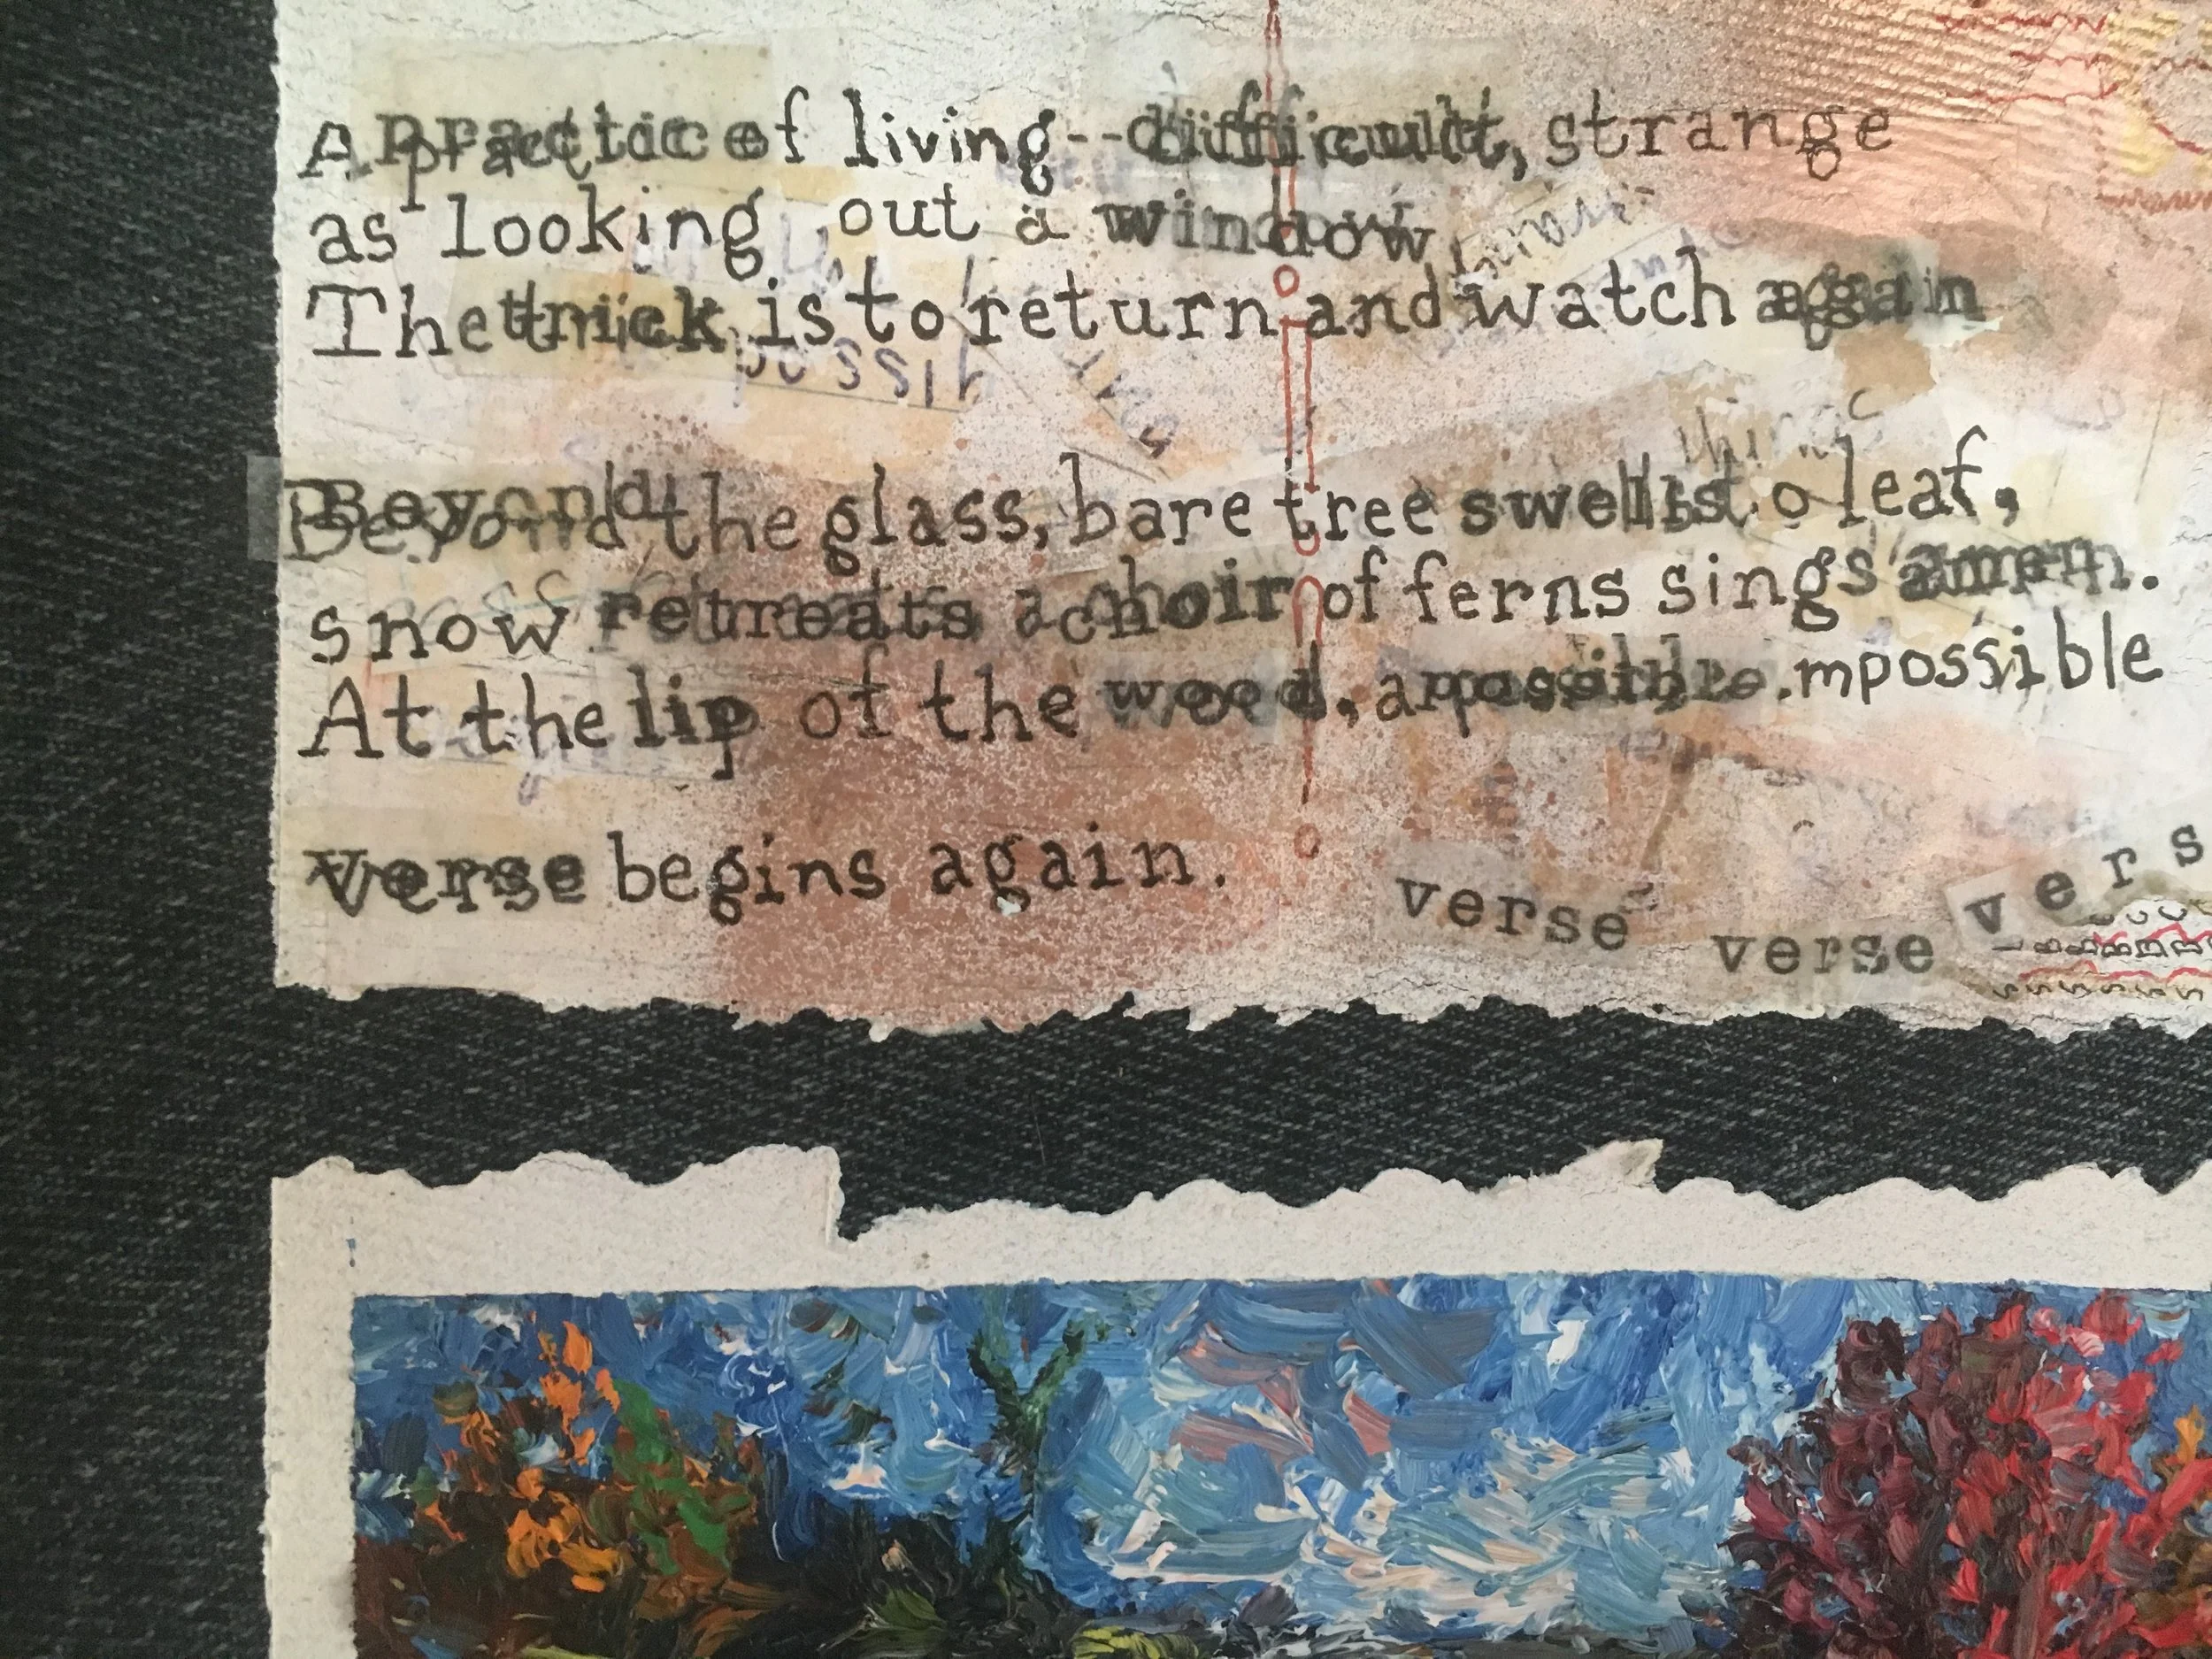 A practice of living--difficult, strange
as looking out a window
The trick is to return and watch again
possib
Beyond the glass, bare tree swells to leaf,
snow retreats a choir of ferns sings amen.
At the lip of the wood, a possible.mpossible
verse begins again.
verse verse vers